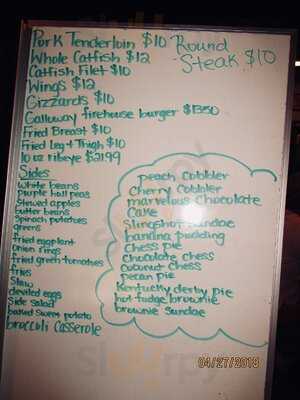 Pork Tenderloin $10
Round Steak $10
Whole Catfish $12
Catfish Filet $10
Wings $12
Gizzards $10
Galloway firehouse burger $13.50
Fried Breast $10
Fried Leg & Thigh $10
10 oz ribeye $21.99
Sides
white beans
purple hull peas
Stewed apples
butter beans
Spinach potatoes
greens
fried eggplant
onion rings
fried green tomatoes
fries
Slaw
deviled eggs
Side Salad
baked sweet potato
broccoli Casserole
peach Cobbler
Cherry Cobbler
marvelous Chocolate
Cake
Slingshot Sundae
banana pudding
Chess pie
Chocolate Chess
Coconut Chess
pecan pie
Kentucky derby pie
hot fudge brownie
brownie Sundae
04/27/2018